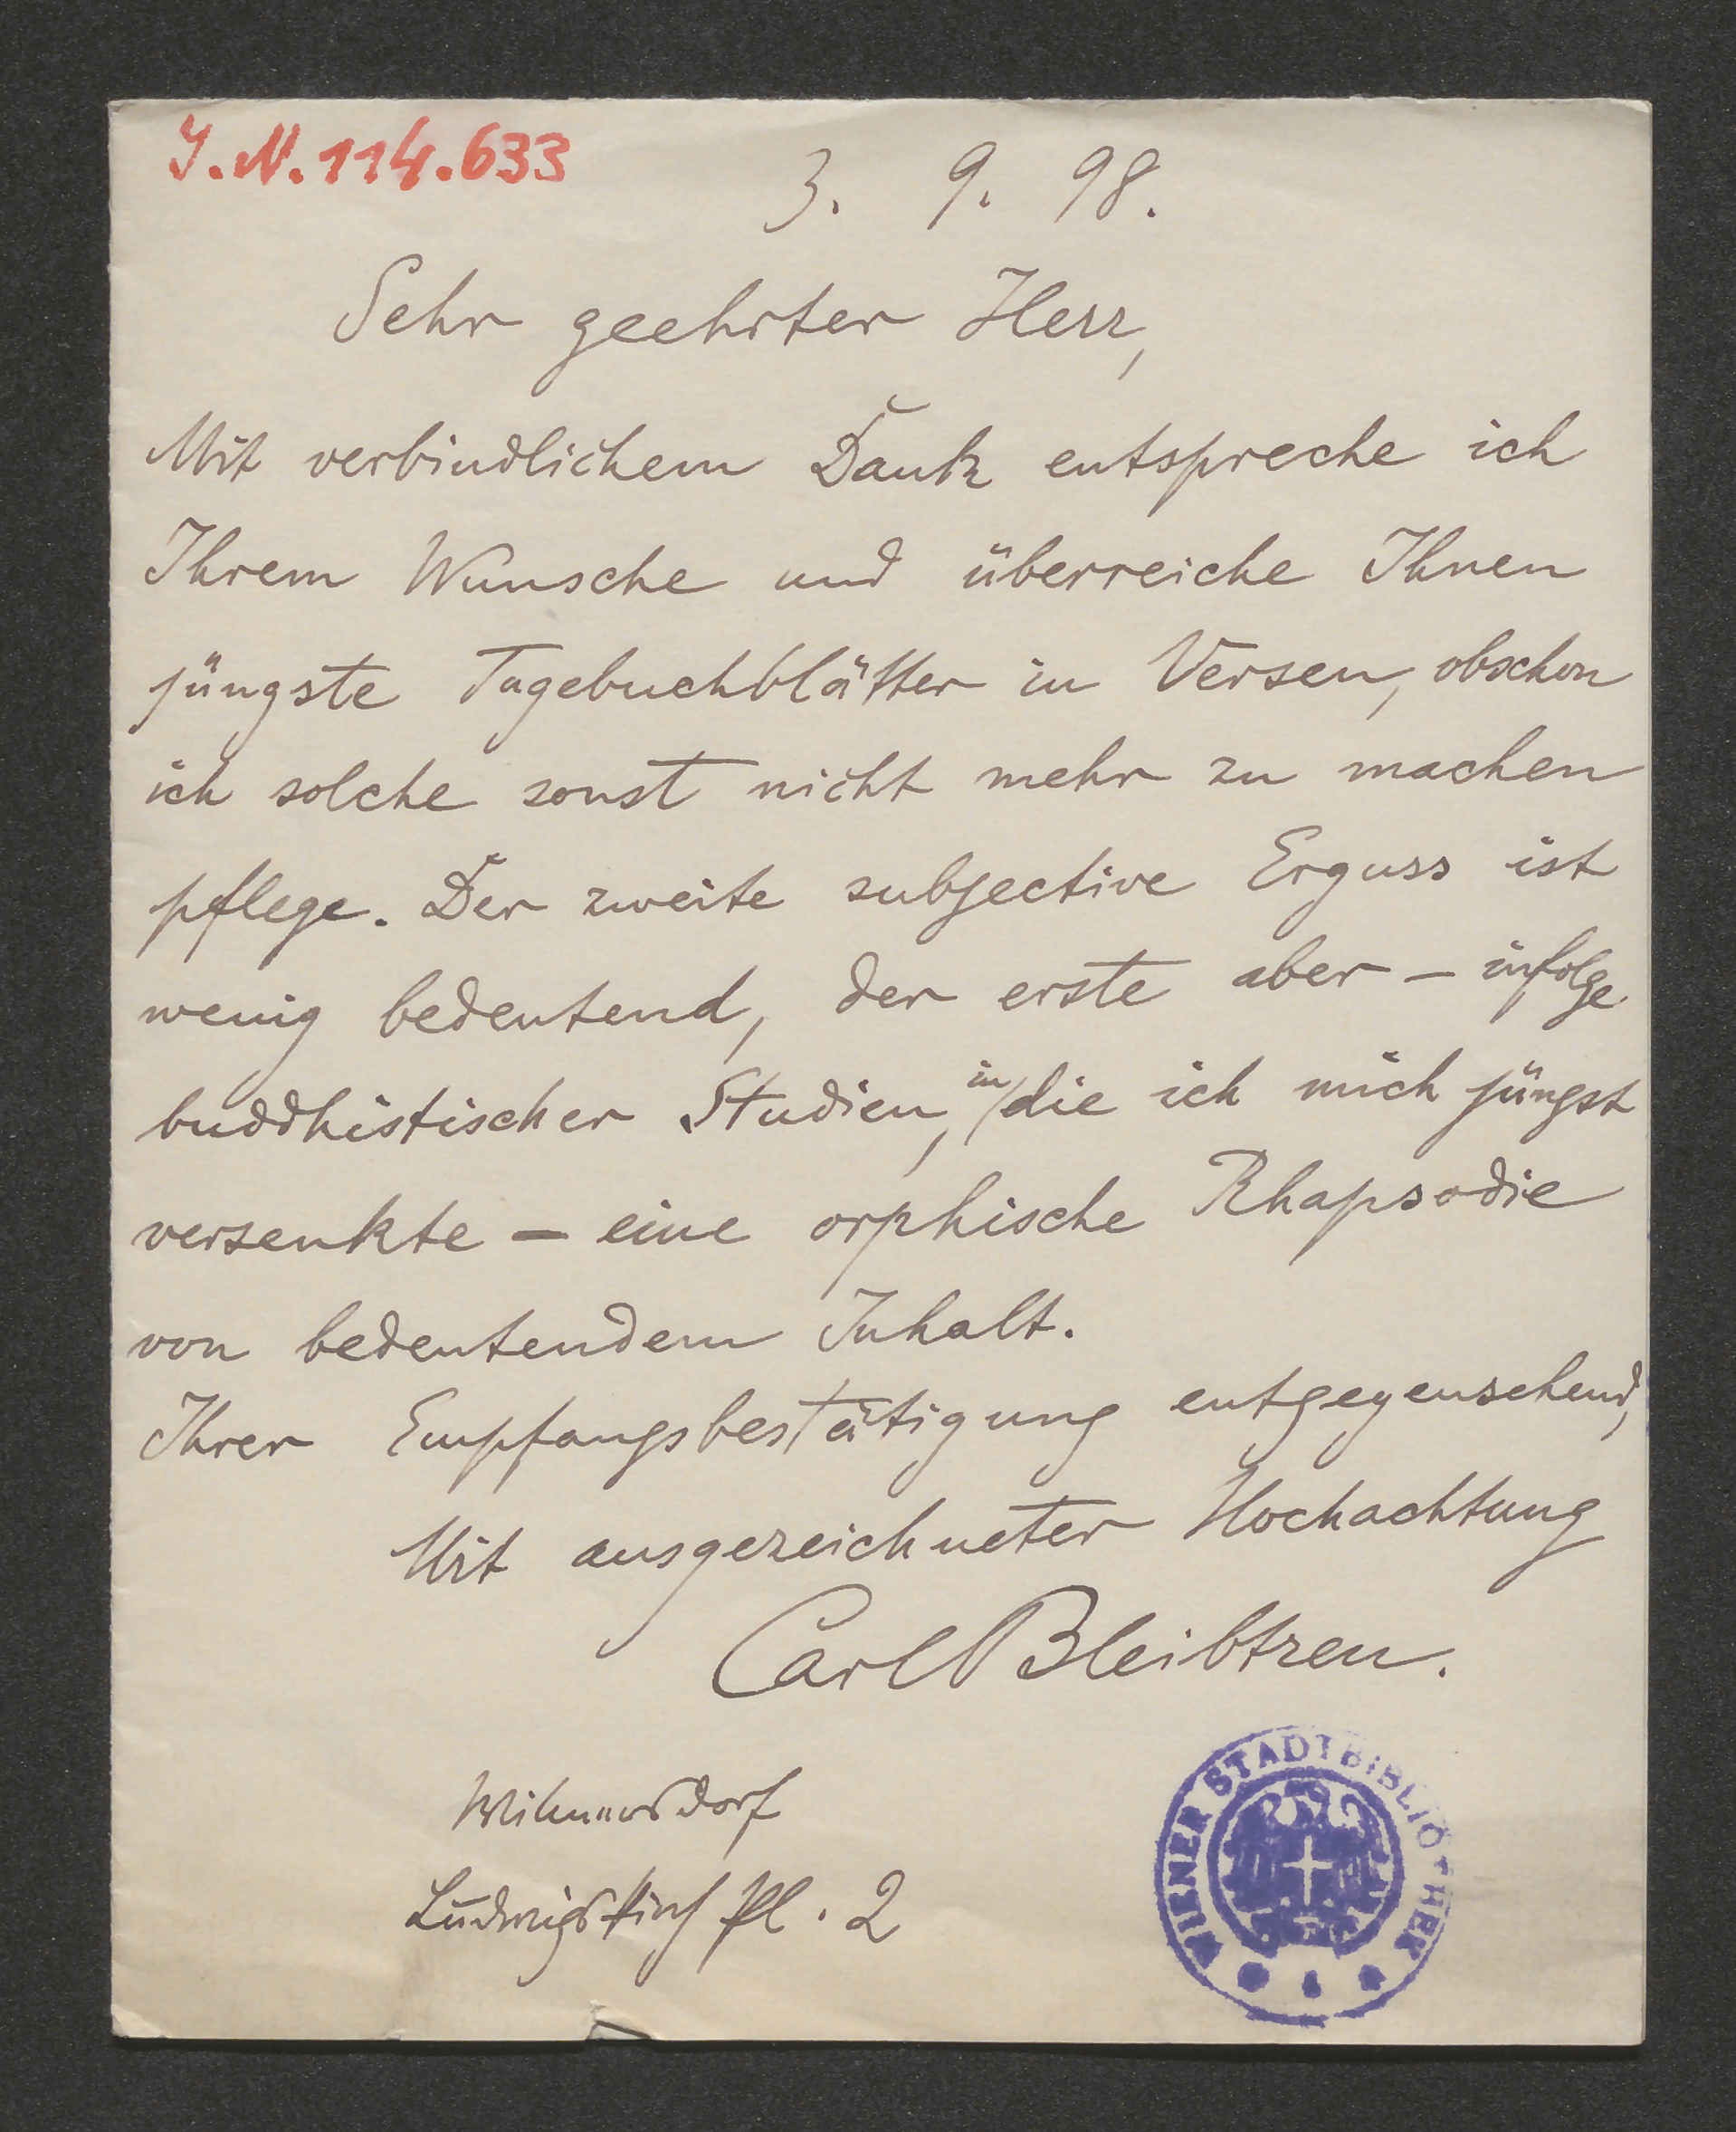 J.N. 114.633
3. 9. 98.
Sehr geehrter Herr,
Mit verbindlichem Dank entspreche ich
Ihrem Wunsche und überreiche Ihnen
jüngste Tagebuchblätter in Versen, obschon
ich solche sonst nicht mehr zu machen
pflege. Der zweite subjective Erguss ist
wenig bedeutend, der erste aber – infolge
buddhistischer Studien, in die ich mich jüngst
versenkte – eine orphische Rhapsodie
von bedeutendem Inhalt.
Ihrer Empfangsbestätigung entgegensehend,
Mit ausgezeichneter Hochachtung
Carl Bleibtreu.
Wilmersdorf
Ludwigskirch Pl. 2
WIENER STADTBIBLIOTHEK